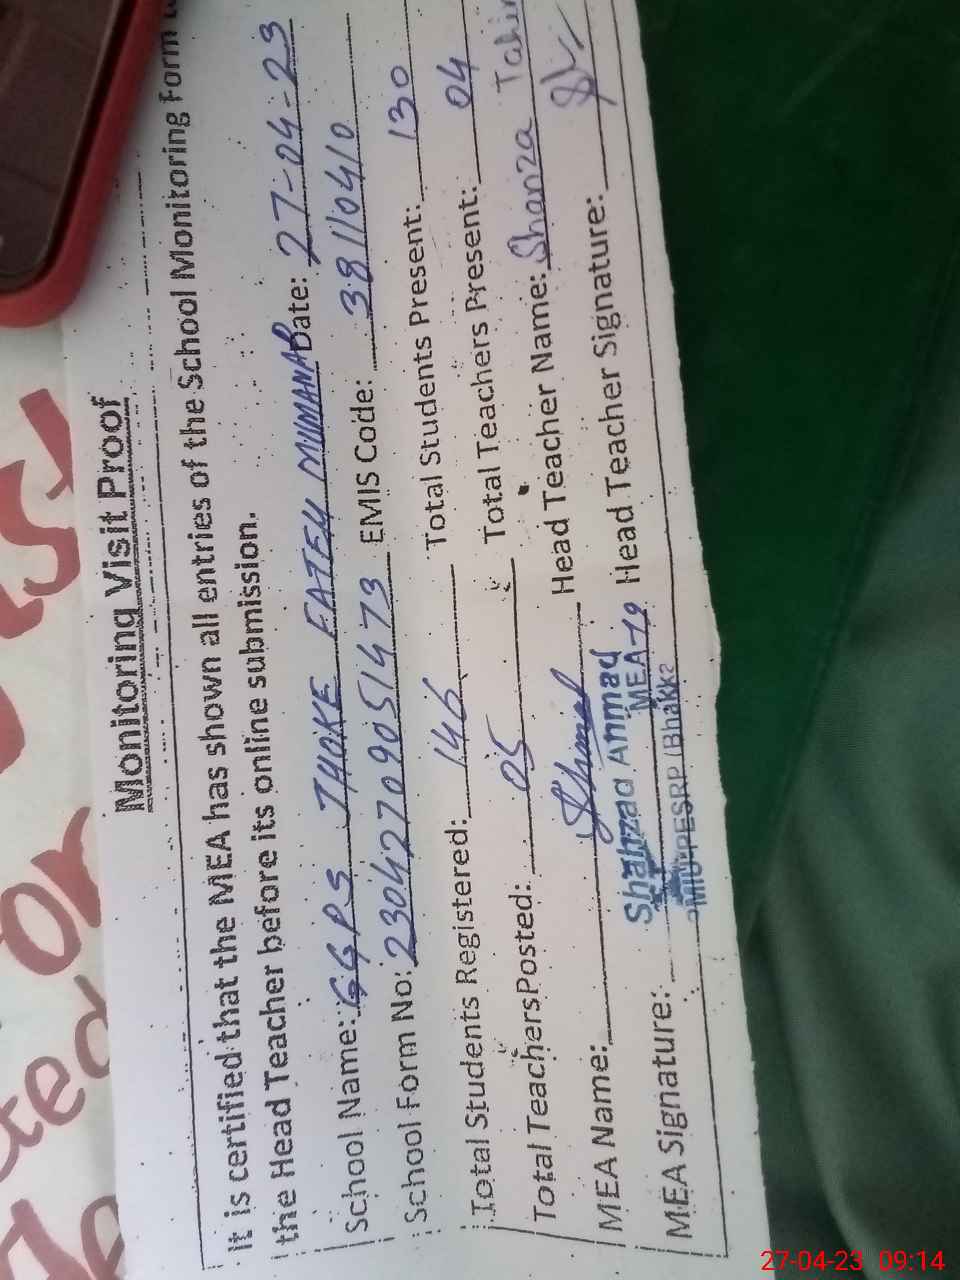 Monitoring Visit Proof
It is certified that the MEA has shown all entries of the School Monitoring Form to
the Head Teacher before its online submission.
School Name: GGPS THOKE FATEH MUMANA Date: 27-04-23
School Form No: 23042709051473 EMIS Code: 38110410
Total Students Registered: 146 Total Students Present: 130
Total TeachersPosted: 05 Total Teachers Present: 04
MEA Name: Head Teacher Name: Shanza Tahir
Shahzad Ahmad
MEA-19
MEA Signature: Head Teacher Signature:
27-04-23 09:14